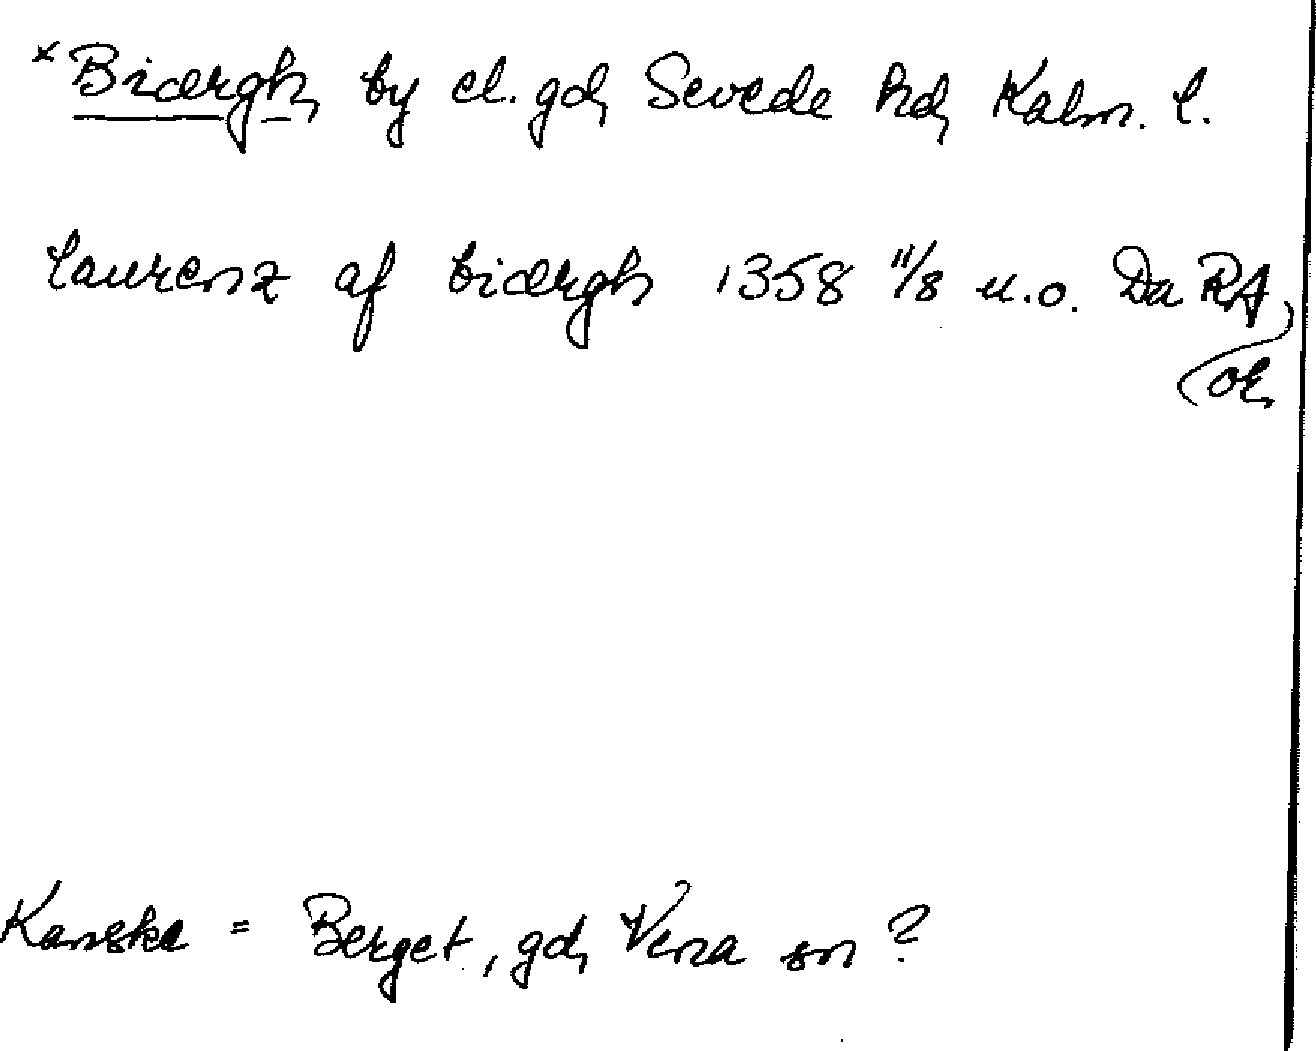 × Biærgh, by el. gd, Sevede hd, Kalm. l.
laurenz af biærgh 1358 11/8 u.o. Da RA,
or.
Kanske = Berget, gd, Vena sn ?